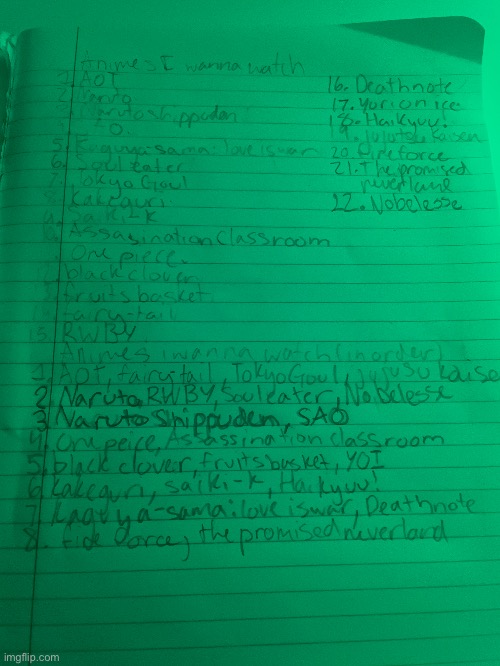 Animes I wanna watch
1. AOT
2. Naruto
Naruto shippudan
5. Kaguya-sama: love is war
6. Soul eater
7. Tokyo Goul
8. Kakegun
9. Saiki-k
10. Assasination Classroom
One piece
black clover
fruits basket
fairy-tail
15. RWBY
16. Deathnote
17. Yuri on ice
18. Haikyuu!
19. Jujutsu Kaisen
20. Fire force
21. The promised
neverland
22. Nobelesse
Animes i wanna watch (in order)
1. AOT, fairy-tail, Tokyo Goul, jujusu Kaise
2. Naruto, RWBY, Soul eater, Nobelesse
3. Naruto Shippuden, SAO
4. One peice, Assassination classroom
5. black clover, fruits basket, YOI
6. Kakegun, saiki-k, Haikyuu!
7. Kaguya-sama: love is war, Deathnote
8. Fire force, the promised neverland
imgflip.com